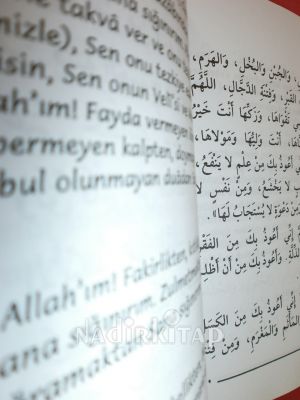 takvâ ver ve onu
mizle), Sen onu tezkiye
isin, Sen onun Velî'si
ah'ım! Fayda vermeyen
permeyen kalpten, doyma
bul olunmayan duâdan
Allah'ım! Fakirlikten,
ana sığınırım. Zulmetmek
ğramaktan
وَالْجُبْنِ وَالْبُخْلِ، وَالْهَرَمِ،
الْقَبْرِ، وَفِتْنَةِ الدَّجَّالِ، اللَّهُمَّ
تَقْوَاهَا، وَزَكِّهَا أَنْتَ خَيْرُ
أَنْتَ وَلِيُّهَا وَمَوْلَاهَا،
أَعُوذُ بِكَ مِنْ عِلْمٍ لَا يَنْفَعُ،
لَا يَخْشَعُ، وَمِنْ نَفْسٍ لَا
مِنْ دَعْوَةٍ لَا يُسْتَجَابُ لَهَا».
إِنِّي أَعُوذُ بِكَ مِنَ الْفَقْرِ
وَأَعُوذُ بِكَ مِنْ أَنْ أَظْلِمَ
إِنِّي أَعُوذُ بِكَ مِنَ الْكَسَلِ
الْمَأْثَمِ وَالْمَغْرَمِ، وَمِنْ فِتْنَةِ
NADİRKİTAP